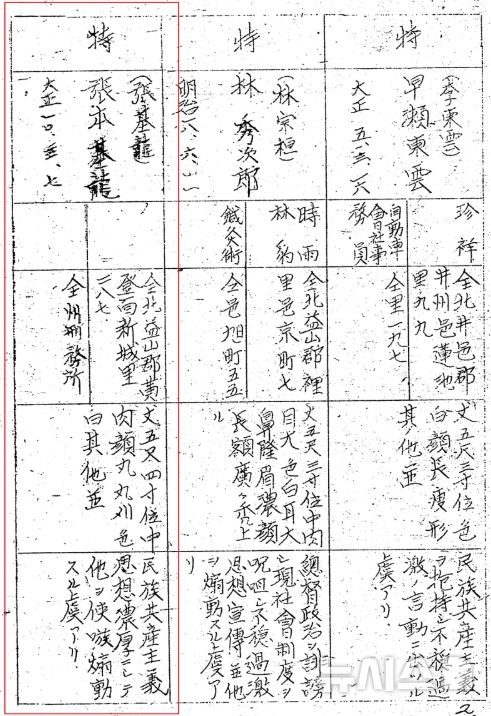 特
(李東雲)
早瀬東雲
大正 五、三、一六
珍祥
自動車
會社事
務員
全北井邑郡
井州邑蓮池
里九九
全里一九七
丈五尺三寸位色
白顔長痩形
其ノ他並
民族共産主義
ヲ抱持シ不穏過
激言動ニ出ツル
虞アリ
特
(林宗桓)
林 秀次郎
明治
時雨
林豹
鍼灸術
全北益山郡裡
里邑京町七
全邑旭町五五
丈五尺三寸位中肉
目大色白耳大
鼻隆眉濃顔
長額廣ク禿上
ル
總督政治ヲ誹謗
シ現社會制度ヲ
呪咀シ不穏過激
思想宣傳並他
ヲ煽動スル虞ア
リ
特
(張基龍)
張本基龍
大正一〇、五、七
全北益山郡黄
登面新城里
三八七
全州刑務所
丈五尺四寸位中
肉顔丸丸刈色
白其ノ他並
民族共産主義
思想濃厚ニシテ
他ヲ使嗾煽動
スル虞アリ
뉴시스